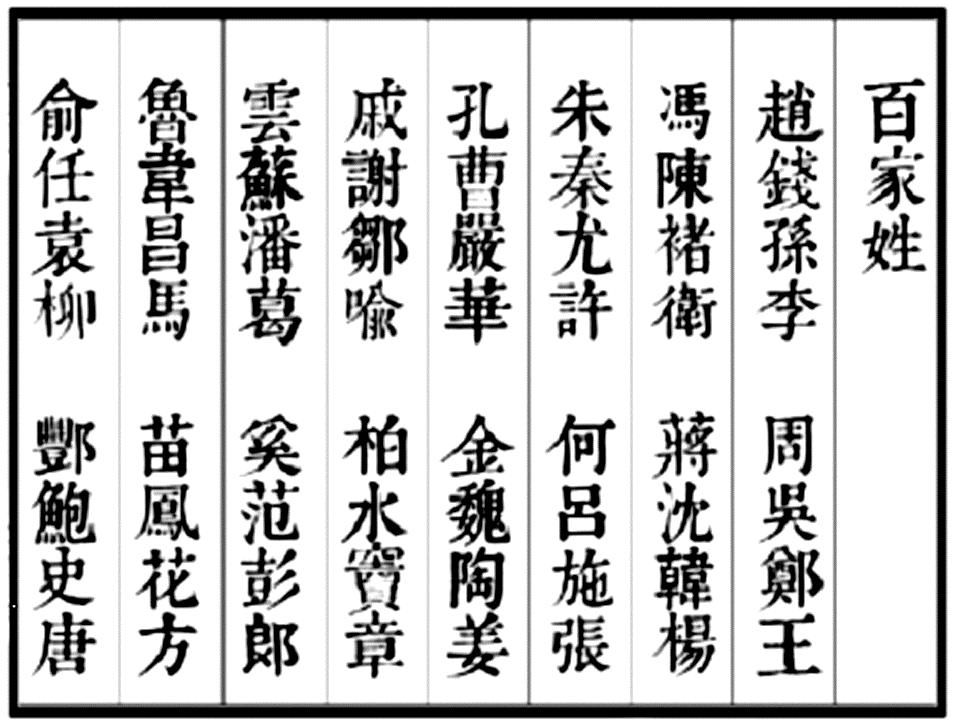 百家姓
趙錢孫李 周吳鄭王
馮陳褚衛 蔣沈韓楊
朱秦尤許 何呂施張
孔曹嚴華 金魏陶姜
戚謝鄒喻 柏水竇章
雲蘇潘葛 奚范彭郎
魯韋昌馬 苗鳳花方
俞任袁柳 酆鮑史唐